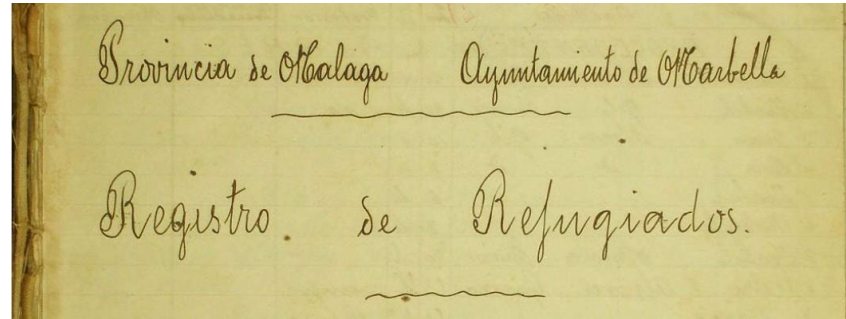 Provincia de Malaga Ayuntamiento de Marbella
Registro. de Refugiados.